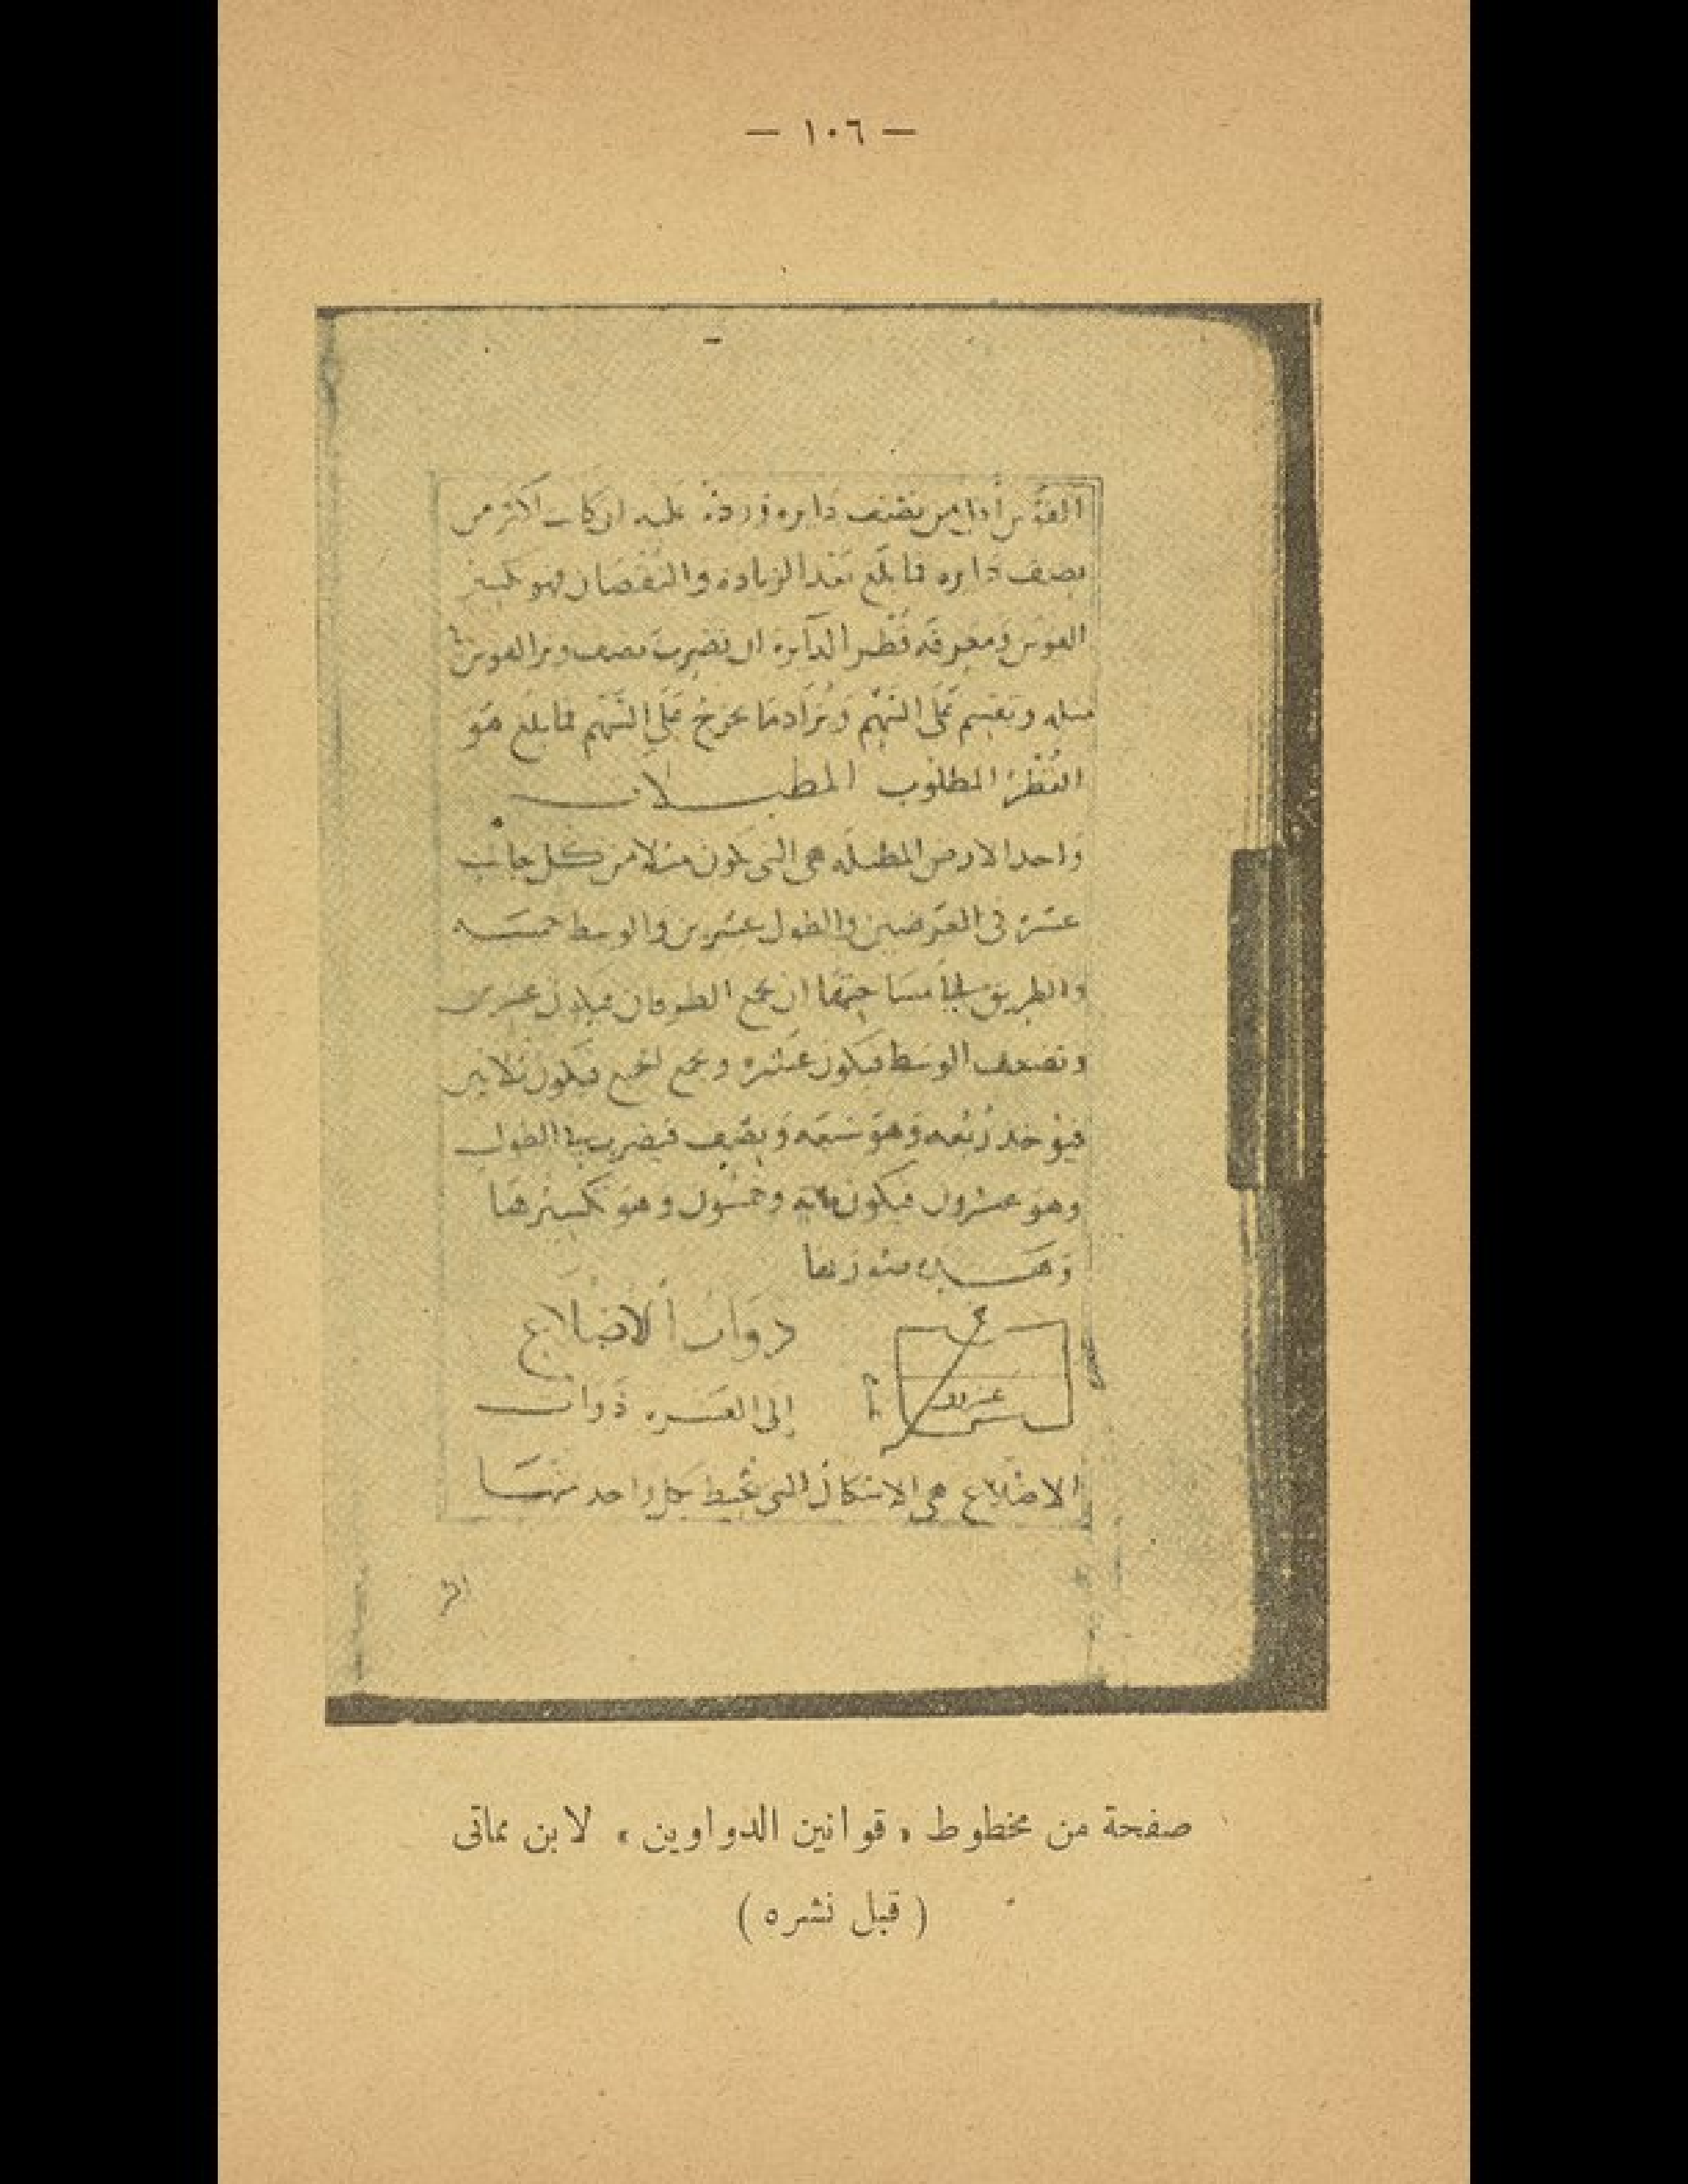 — ١٠٦ —
القوس أقل من نصف دايره وزدته عليه ان كانت اكثر من
نصف دايره فما بلغ بعد الزياده والنقصان فهو تكسير
القوس ومعرفه قطر الدآيرة ان تضرب نصف وتر القوس في
مثله وتقسم على السهم وتزاد ما يخرج على السهم فما بلغ هو
القطر المطلوب المطبلات
واحد الارض المطبله هي التى يكون مثلا من كل جانب
عشرة فى العرضين والطول عشرين والوسط خمسه
والطريق مساحتها ان تجمع الطرفان عشرين
وتضعف الوسط فيكون عشره وتجمع الجميع فيكون ثلاثين
فيؤخذ ربعه وهو سبعه ونصف فيضرب الطول
وهو عشرون فيكون مايه وخمسون وهو تكسيرها
وهذه صورتها
ذوات الاضلاع
عشرون
إلى العشره ذوات
الاضلاع هى الاشكال التى تحيط بكل واحد منها
صفحة من مخطوط « قوانين الدواوين » لابن مماتى
( قبل نشره )